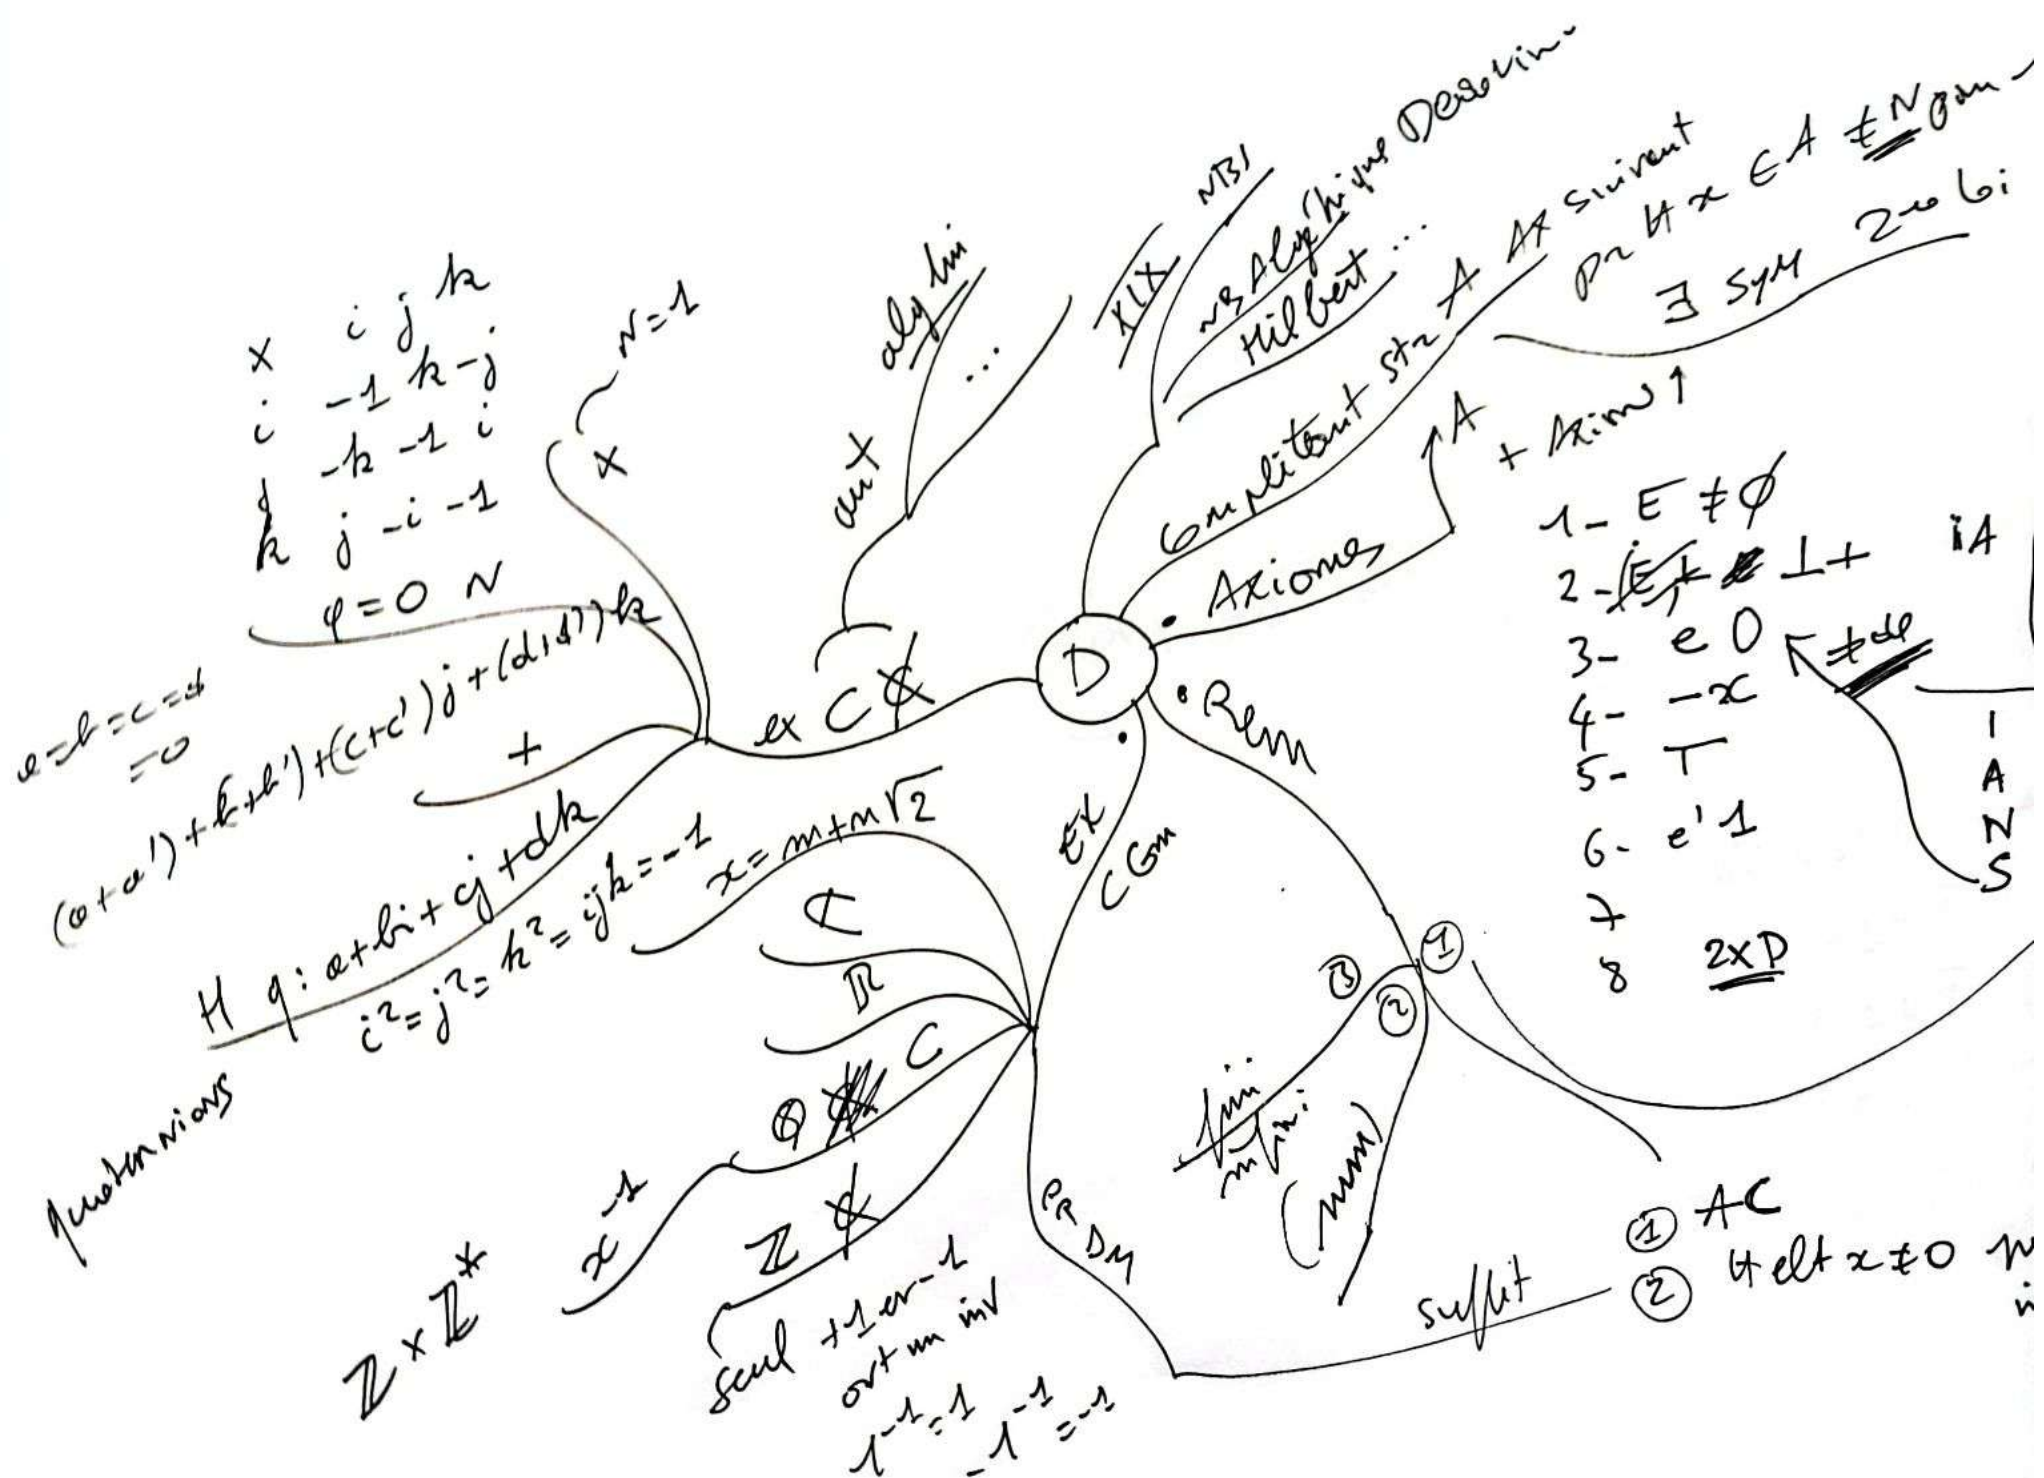 × i j k
i -1 k -j
j -k -1 i
k j -i -1
φ = 0 N
N = 1
×
a=b=c=d
=0
(a+a')+(b+b')i+(c+c')j+(d+d')k
+
H q: a+bi+cj+dk
i²=j²=k²=ijk=-1
quaternions
ex C
aux
alg lin
...
XIX
NBs
Hilbert ...
Complétant str A Ax suivant
pr ∀ x ∈ A ≠ N
∃ sym 2e loi
D
• Axiomes
A
+ Axiom ↑
1- E ≠ ∅
2- ⊥ +
3- e 0
4- -x
5- T
6- e' 1
7
8 2×D
iA
I
A
N
S
• Rem
①
②
③
fini
infini
EX
C Gm
x = m+n√2
C
R
Q C
x⁻¹
Z × Z*
Z
seul +1 et -1
ont un inv
1⁻¹=1
-1⁻¹=-1
PR
DM
suffit
① AC
② ∀ elt x ≠ 0